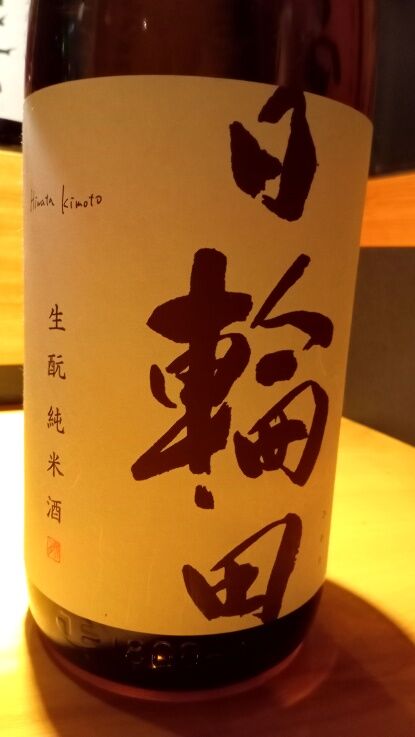 日輪田
Hiwata Kimoto
生酛純米酒